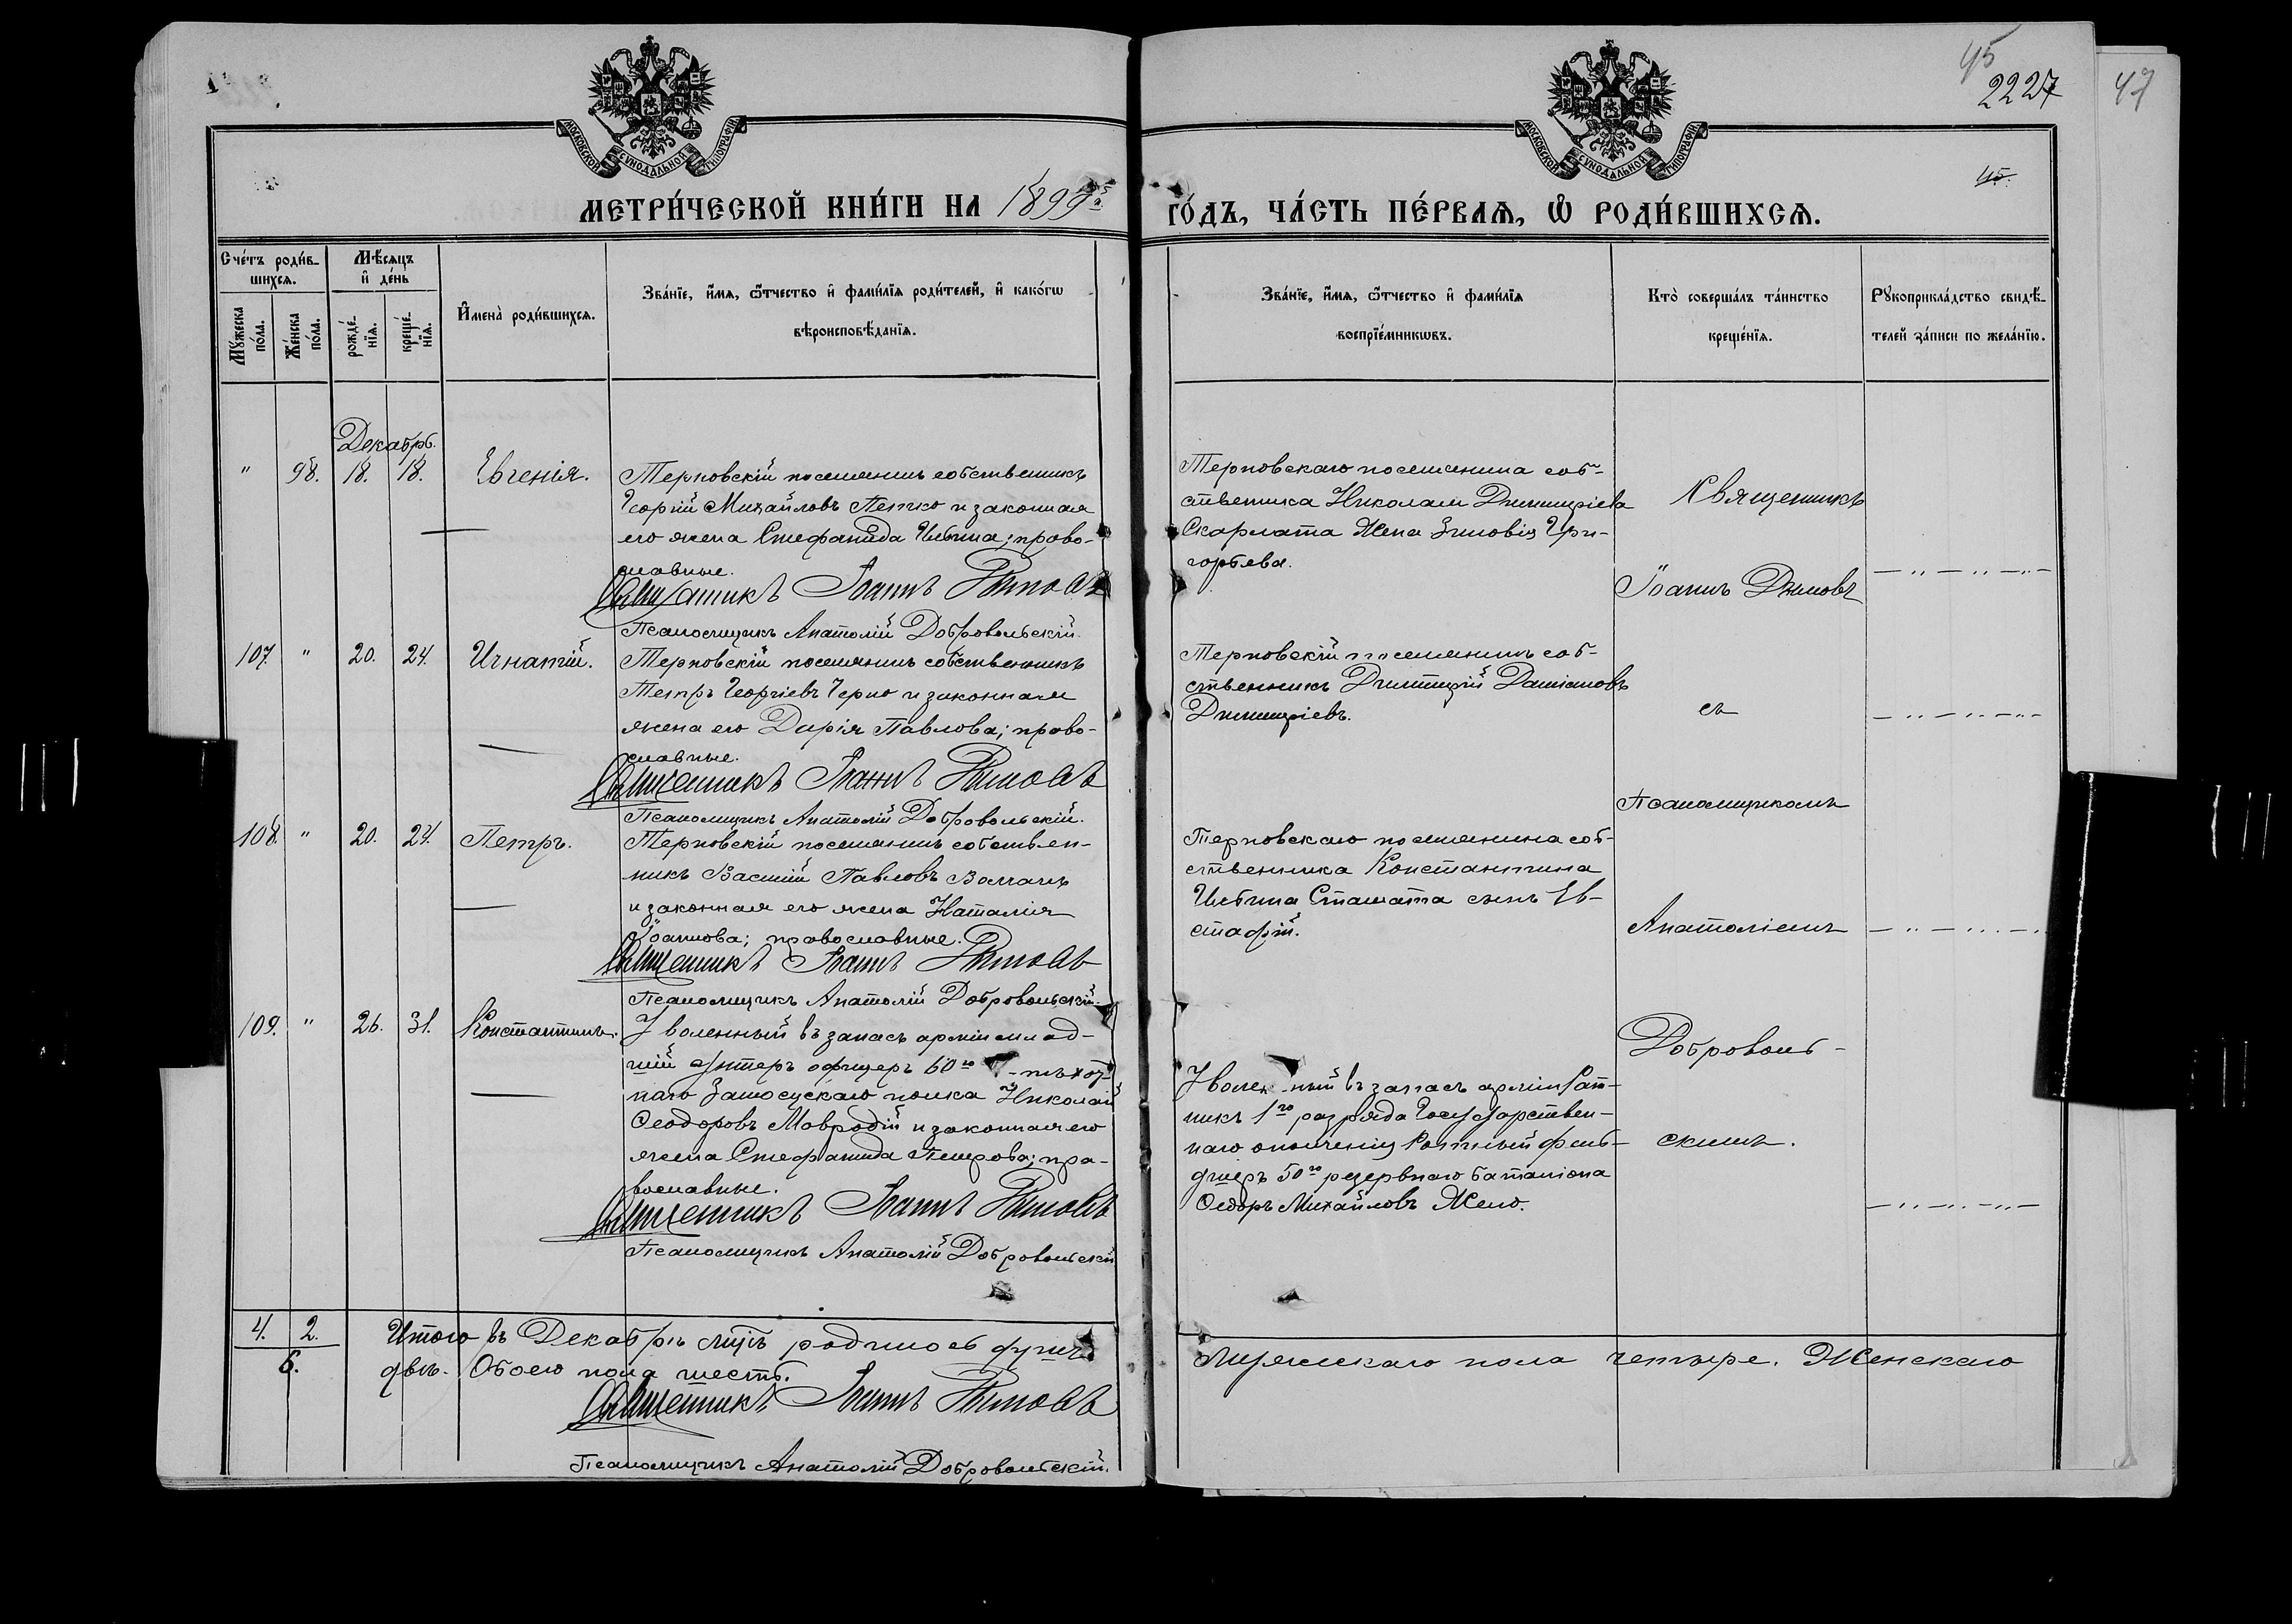 45
2227
47
45.
МОСКОВСКОЙ СѴНОДАЛЬНОЙ ТИПОГРАФІИ
МОСКОВСКОЙ СѴНОДАЛЬНОЙ ТИПОГРАФІИ
МЕТРИ́ЧЕСКОЙ КНИ́ГИ НА 1899й
ГО́ДЪ, ЧА́СТЬ ПЕ́РВАѦ, Ѡ РОДИ́ВШИХСѦ.
Сче́тъ роди́в-
шихсѧ.
Мꙋ́жеска по́ла.
Же́нска по́ла.
Мѣ́сѧцъ
и҆ де́нь
рожде́-нїѧ.
креще́-нїѧ.
И҆мена̀ роди́вшихсѧ.
Зва́нїе, и҆́мѧ, ѻ҆́тчество и҆ фами́лїѧ роди́телей, и҆ како́гѡ
вѣроисповѣ́данїѧ.
Зва́нїе, и҆́мѧ, ѻ҆́тчество и҆ фами́лїѧ
воспрїе́мникѡвъ.
Кто̀ соверша́лъ та́инство
креще́нїѧ.
Рꙋкоприкла́дство свидѣ́-
телей за́писи по жела́нїю.
Декабрь.
" 98. 18. 18. Евгенія.
Терновскій поселянинъ собственникъ
Георгій Михайловъ Петко и законная
его жена Стефанида Ильина; право-
славные.
Священникъ Іоаннъ Дымовъ
Псаломщикъ Анатолій Добровольскій.
Терновскаго поселянина соб-
ственника Николая Димитріева
Скарлата Жена Зиновія Гри-
горьева.
Священникъ
Іоаннъ Дымовъ
107. " 20. 24. Игнатій.
Терновскій поселянинъ собственникъ
Петръ Георгіевъ Черно и законная
жена его Дарія Павлова; право-
славные.
Священникъ Іоаннъ Дымовъ
Псаломщикъ Анатолій Добровольскій.
Терновскій поселянинъ соб-
ственникъ Димитрій Даміановъ
Димитріевъ.
съ
Псаломщикомъ
108. " 20. 24. Петръ.
Терновскій поселянинъ собствен-
никъ Василій Павловъ
и законная его жена Наталія
Іоаннова; православные.
Священникъ Іоаннъ Дымовъ
Псаломщикъ Анатолій Добровольскій.
Терновскаго поселянина соб-
ственника Константина
Ильина Стамата сынъ Ев-
стафій.
Анатоліемъ
109. " 26. 31. Константинъ.
Уволенный въ запасъ арміи млад-
шій унтеръ офицеръ 60го пѣхот-
наго Замосцскаго полка Николай
Ѳеодоровъ Мавродій и законная его
жена Стефанида Петрова; пра-
вославные.
Священникъ Іоаннъ Дымовъ
Псаломщикъ Анатолій Добровольскій
Уволенный въ запасъ арміи Рат-
никъ 1го разряда Государствен-
наго ополченія Ротный фель-
дшеръ 50го резервнаго баталіона
Ѳедоръ Михайловъ Жело.
Доброволь-
скимъ.
4. 2.
6.
Итого въ Декабрѣ мцѣ родилось душъ
Мужескаго пола четыре. Женскаго
двѣ. Обоего пола шесть.
Священникъ Іоаннъ Дымовъ
Псаломщикъ Анатолій Добровольскій.